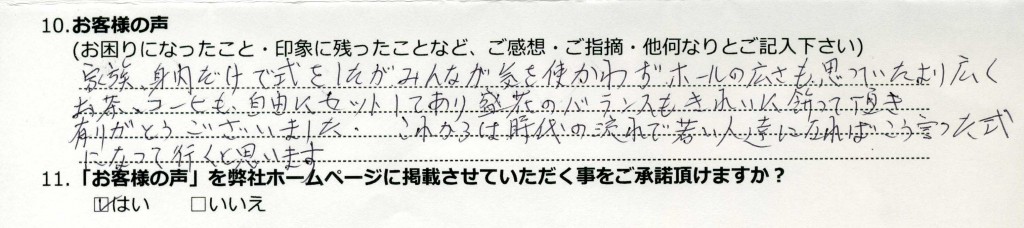 10.お客様の声
(お困りになったこと・印象に残ったことなど、ご感想・ご指摘・他何なりとご記入下さい)
家族、身内だけで式をしたがみんなが気を使かわずホールの広さも思っていたより広く
お茶、コーヒも、自由にセットしてあり盛花のバランスもきれいに飾って頂き
有りがとうございました。これからは時代の流れで若い人達になればこう言った式
になって行くと思います
11.「お客様の声」を弊社ホームページに掲載させていただく事をご承諾頂けますか？
☑はい □いいえ